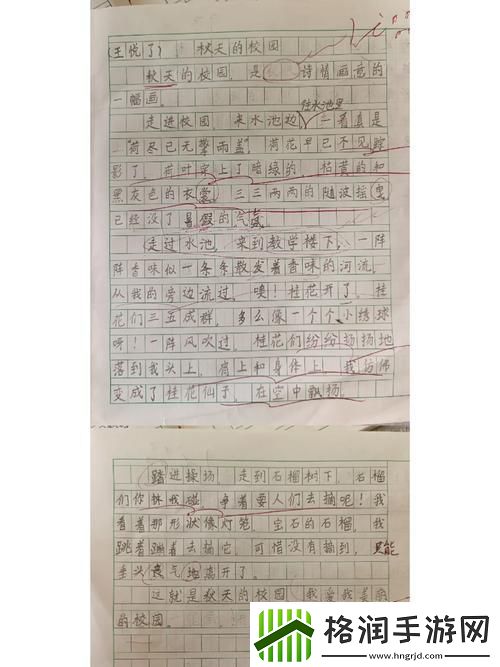 (王悦了) 秋天的校园
秋天的校园，是诗情画意的
一幅画。
往水池里
走进校园，来水池边，一看真是
“荷尽已无擎雨盖”，荷花早已不见踪
影了，荷叶穿上了暗绿的、枯黄的和
黑灰色的衣裳，三三两两的随波摇曳，
已经没了暑假的气氛。
走过水池，来到教学楼下，一阵
阵香味似一条条散发着香味的河流，
从我的旁边流过。噢！桂花开了，桂
花们三五成群，多么像一个个小绣球
呀！一阵风吹过，桂花们纷纷扬扬地
落到我头上，肩上和身体上，我仿佛
变成了桂花仙子，在空中飘扬。
踏进操场，走到石榴树下，石榴
们你挤我碰，争着要人们去摘呢！我
看着那形状像灯笼，宝石的石榴，我
跳着蹦着去摘它，可惜没有摘到，只能
垂头丧气地离开了。
这就是秋天的校园，我爱我美丽
的校园。
格润手游网
www.hngrjd.com